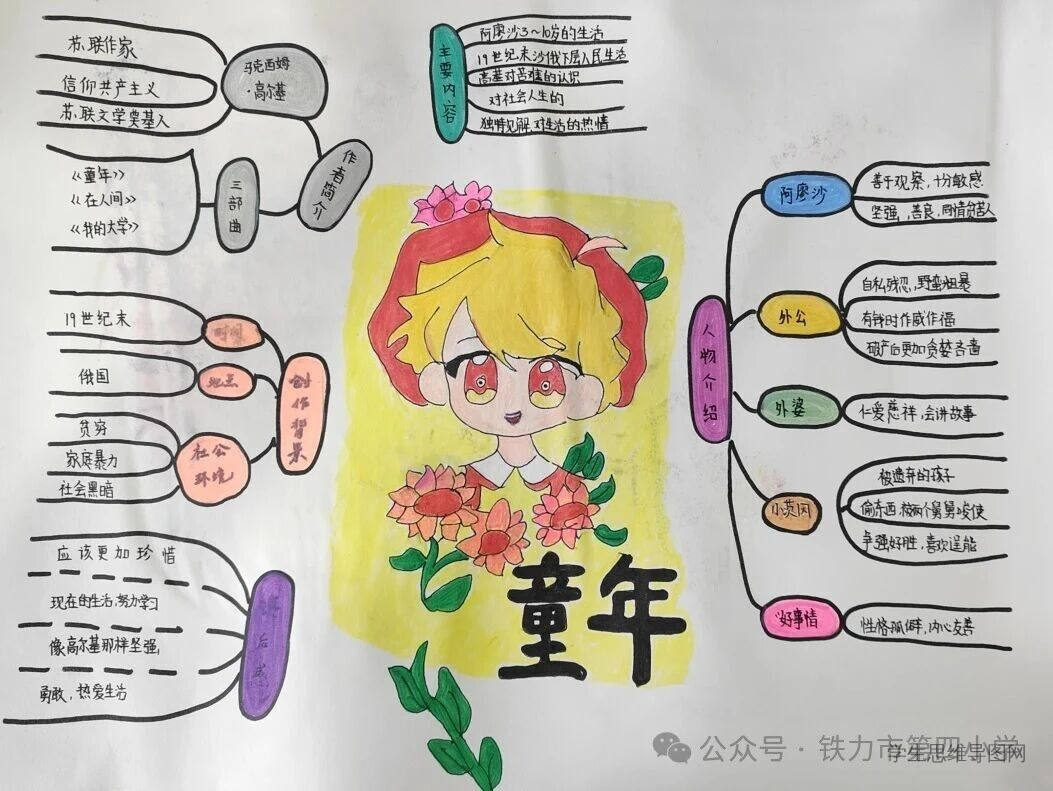 马克西姆
·高尔基
苏.联作家
信仰共产主义
苏.联文学奠基人
作者简介
三部曲
《童年》
《在人间》
《我的大学》
主要内容
阿廖沙3～10岁的生活
19世纪末沙俄下层人民生活
高基对苦难的认识
对社会人生的
独特见解 对生活的热情
创作背景
时间
19世纪末
地点
俄国
社公
环境
贫穷
家庭暴力
社会黑暗
读后感
应该更加珍惜
现在的生活,努力学习
像高尔基那样坚强,
勇敢,热爱生活
人物介绍
阿廖沙
善于观察,十分敏感
坚强,善良,同情贫苦人
外公
自私残忍,野蛮粗暴
有钱时作威作福
破产后更加贪婪吝啬
外婆
仁爱慈祥,会讲故事
小茨冈
被遗弃的孩子
偷东西,被两个舅舅唆使
争强好胜,喜欢逞能
"好事情
性格孤僻,内心友善
童年
公众号·铁力市第四小学
学生思维导图网